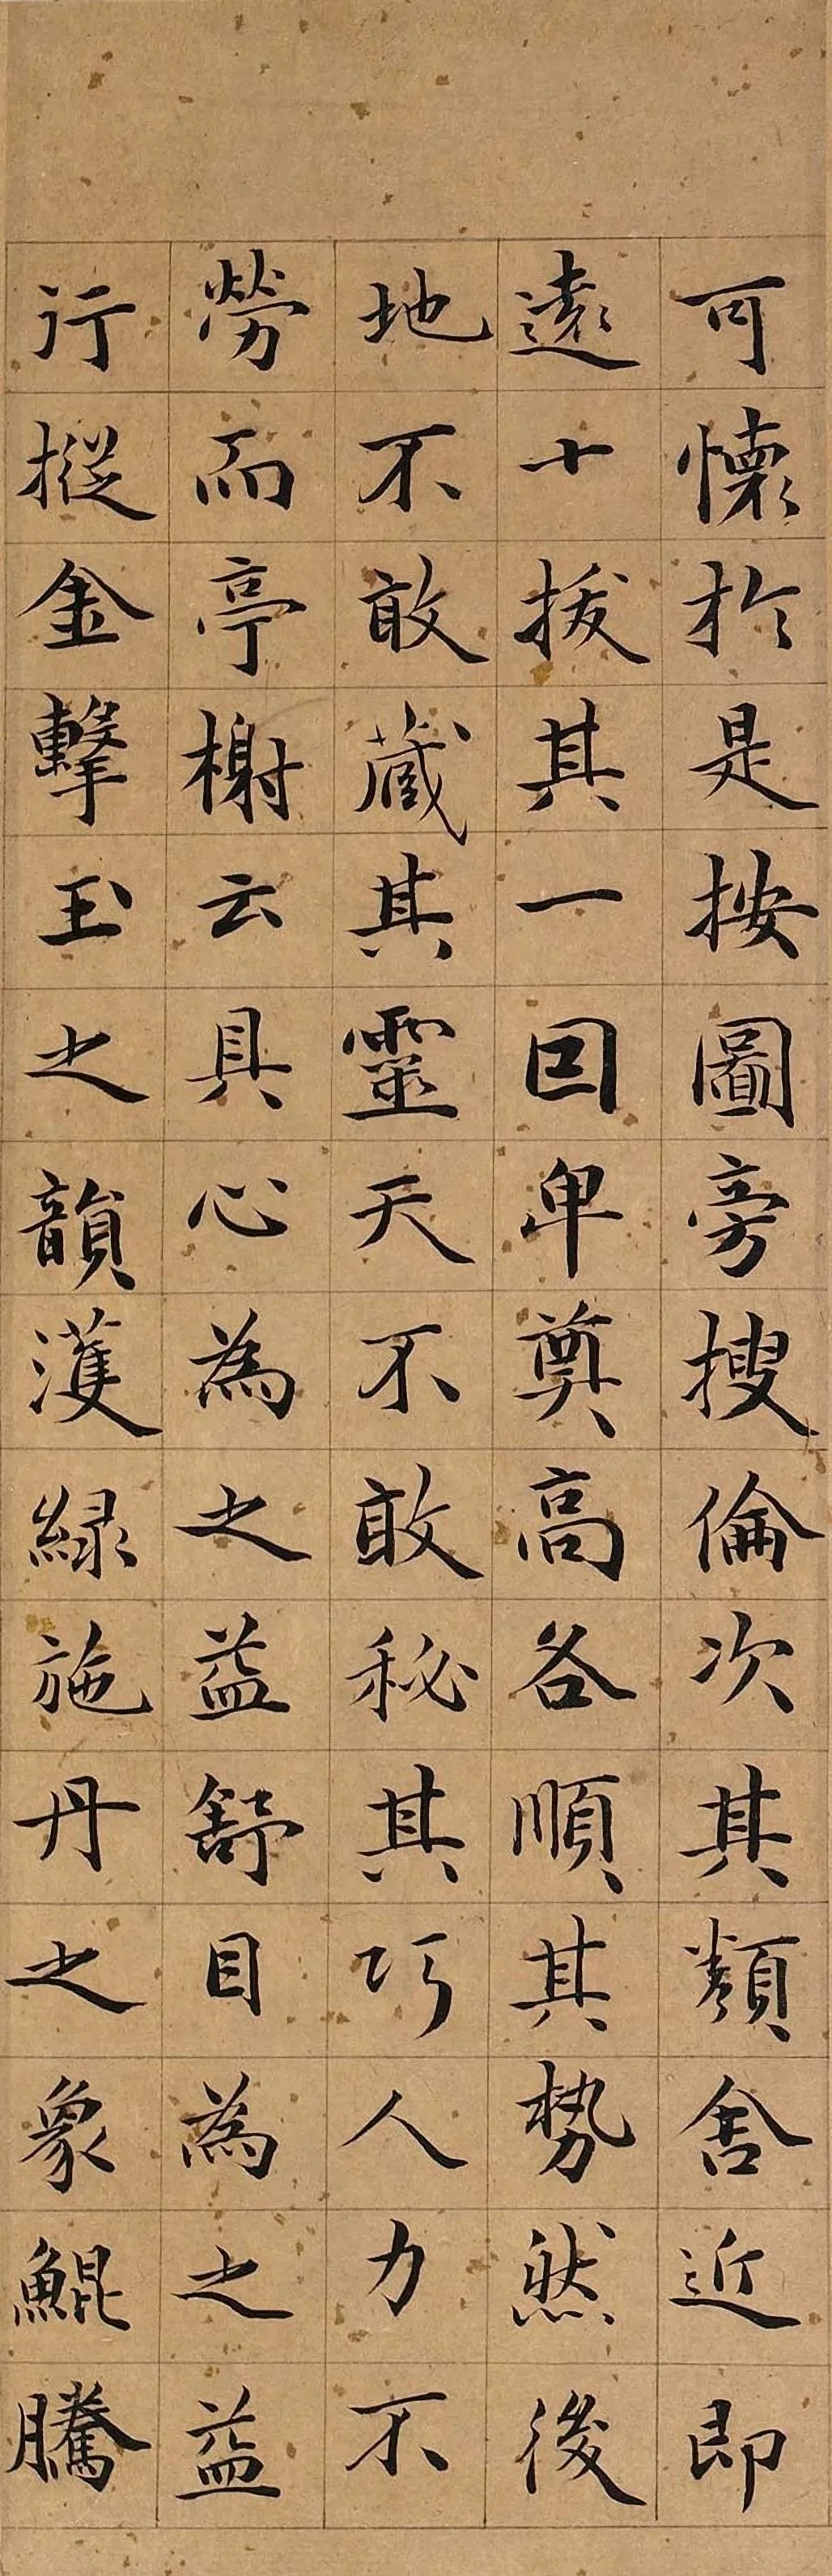 可懷於是按圖旁搜倫次其類舍近即
遠十拔其一因卑奠高各順其勢然後
地不敢藏其靈天不敢秘其巧人力不
勞而亭榭云具心為之益舒目為之益
行摐金擊玉之韻濩綠施丹之象鯤騰